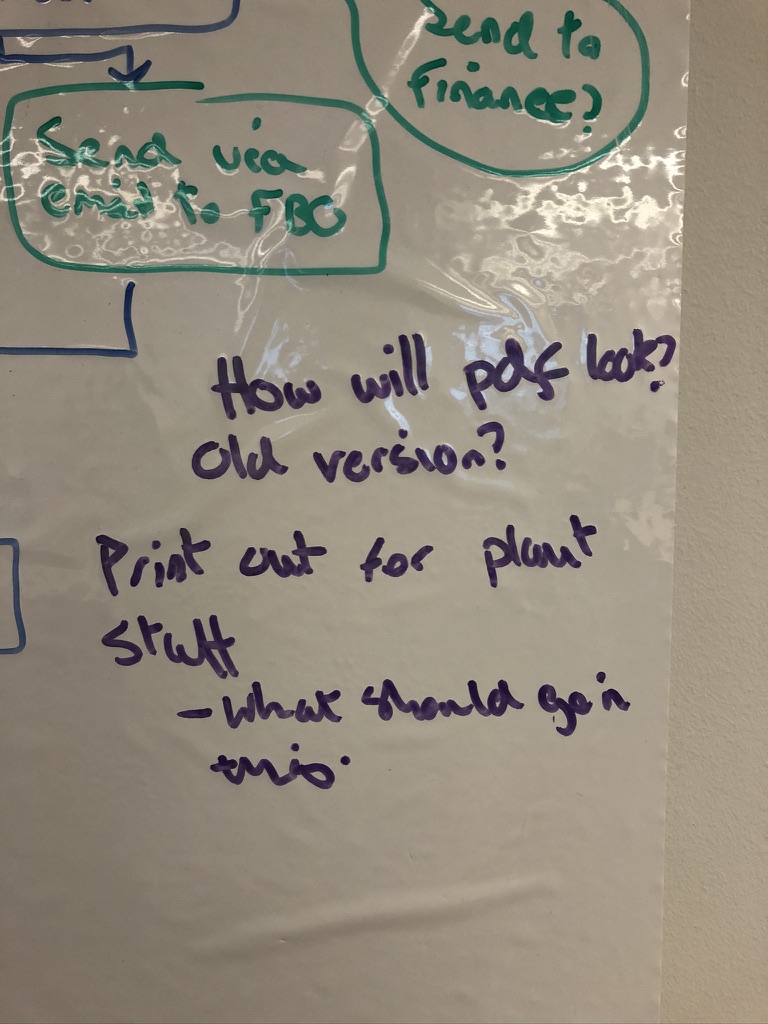 Send to
Finance?
Send via
email to FBO
How will pdf look?
Old version?
Print out for plant
Staff
- What should go in
this.